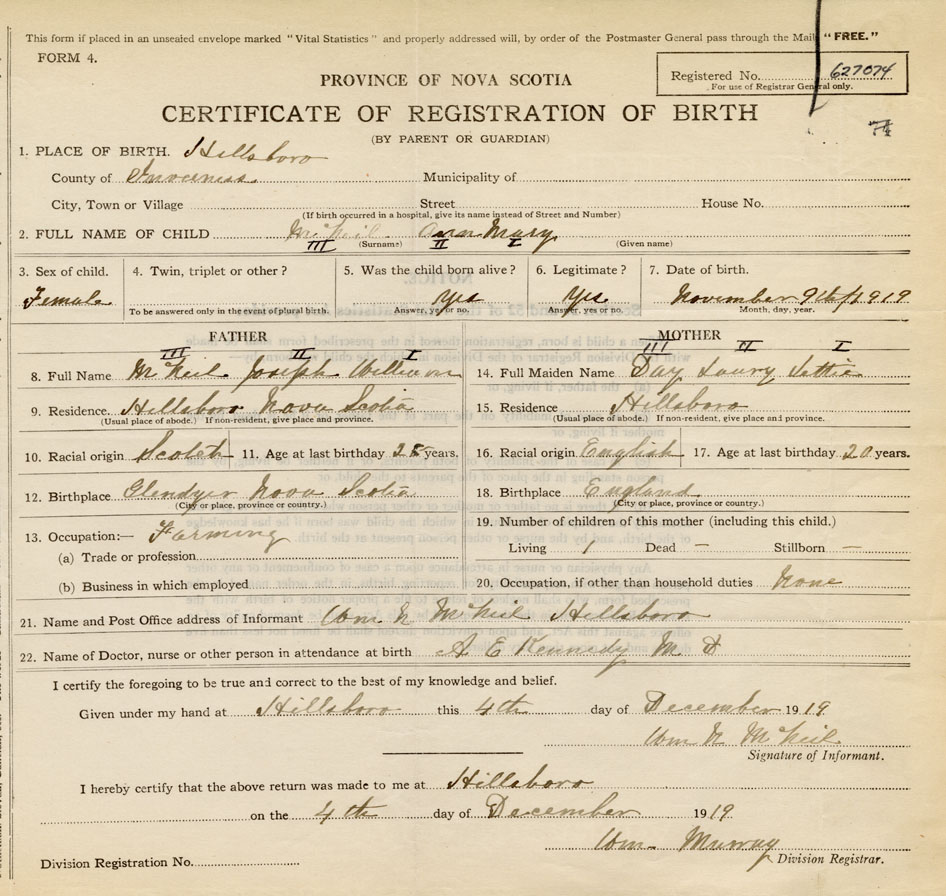 This form if placed in an unsealed envelope marked "Vital Statistics" and properly addressed will, by order of the Postmaster General pass through the Mail "FREE."
FORM 4.
PROVINCE OF NOVA SCOTIA
Registered No. 627074
For use of Registrar General only.
CERTIFICATE OF REGISTRATION OF BIRTH
74
(BY PARENT OR GUARDIAN)
1. PLACE OF BIRTH. Hillsboro
County of Inverness Municipality of
City, Town or Village Street House No.
(If birth occurred in a hospital, give its name instead of Street and Number)
2. FULL NAME OF CHILD McNeil Ann Mary
III (Surname) II I (Given name)
3. Sex of child. 4. Twin, triplet or other? 5. Was the child born alive? 6. Legitimate? 7. Date of birth.
Female Yes Yes November 9th 1919
To be answered only in the event of plural birth. Answer, yes or no. Answer, yes or no. Month, day, year.
FATHER MOTHER
III II I III II I
8. Full Name McNeil Joseph William 14. Full Maiden Name Day Laury
9. Residence. Hillsboro Nova Scotia 15. Residence Hillsboro
(Usual place of abode.) If non-resident, give place and province. (Usual place of abode.) If non-resident, give place and province.
10. Racial origin Scotch 11. Age at last birthday 25 years. 16. Racial origin English 17. Age at last birthday 20 years.
12. Birthplace Glendyer Nova Scotia 18. Birthplace England
(City or place, province or country.) (City or place, province or country.)
13. Occupation:— Farming 19. Number of children of this mother (including this child.)
(a) Trade or profession Living 1 Dead — Stillborn —
(b) Business in which employed 20. Occupation, if other than household duties None
21. Name and Post Office address of Informant Wm N McNeil Hillsboro
22. Name of Doctor, nurse or other person in attendance at birth A E Kennedy M D
I certify the foregoing to be true and correct to the best of my knowledge and belief.
Given under my hand at Hillsboro this 4th day of December 1919
Wm N McNeil
Signature of Informant.
I hereby certify that the above return was made to me at Hillsboro
on the 4th day of December 1919
Wm. Murray
Division Registration No. Division Registrar.